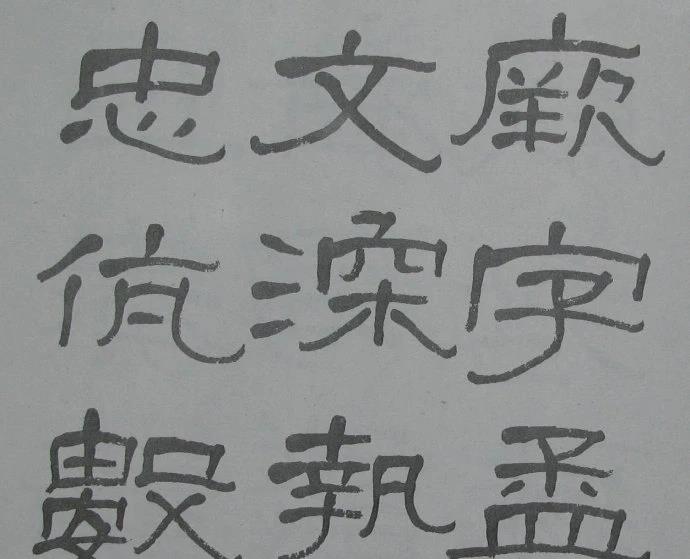 厥字孟
文深執
忠伉數